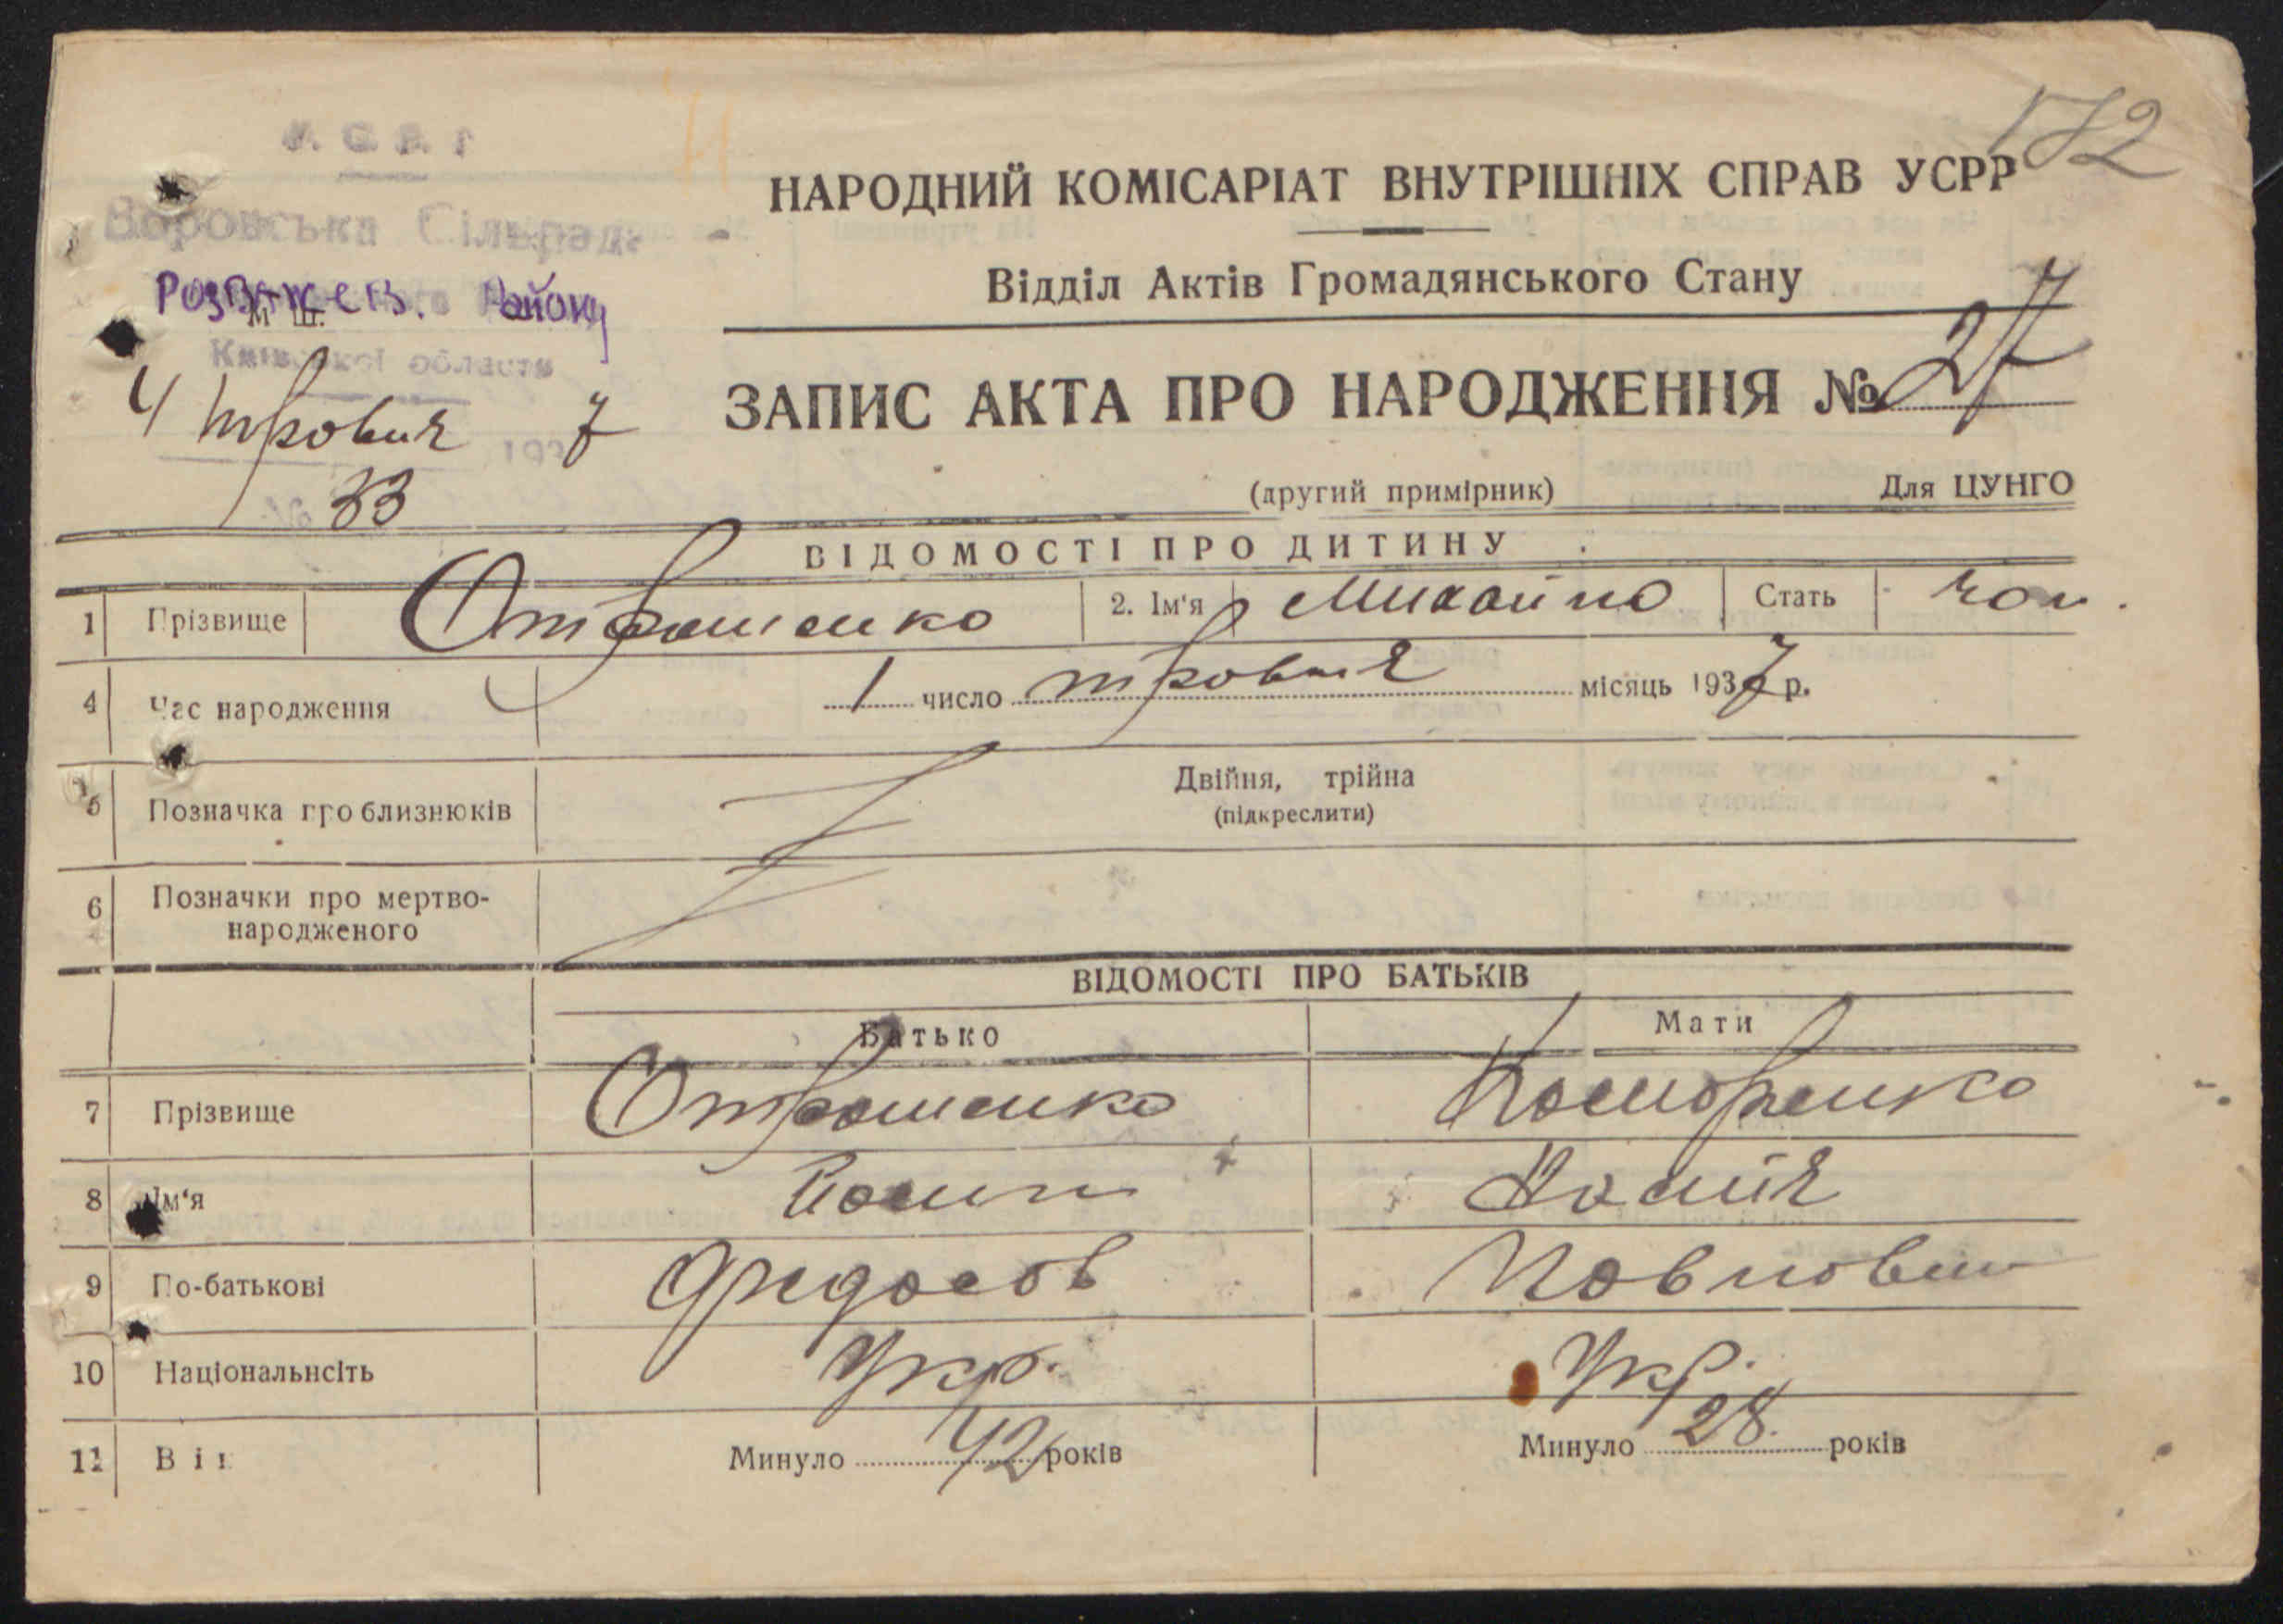 172
У. С. Р. Р
НАРОДНИЙ КОМІСАРІАТ ВНУТРІШНІХ СПРАВ УСРР
Відділ Актів Громадянського Стану
Сільрада
Розважев. Району
Київської области
4 травня 7
193
№ 33
ЗАПИС АКТА ПРО НАРОДЖЕННЯ № 27
(другий примірник) Для ЦУНГО
ВІДОМОСТІ ПРО ДИТИНУ
1 Прізвище Отрошенко 2. Ім'я Михайло Стать чол.
4 Час народження 1 число травня місяць 1937 р.
5 Позначка про близнюків Двійня, трійна
(підкреслити)
6 Позначки про мертво-
народженого
ВІДОМОСТІ ПРО БАТЬКІВ
Батько Мати
7 Прізвище Отрошенко
8 Ім'я Йосип
9 По-батькові Федосов Павловна
10 Національнсіть Укр. Укр.
11 Вік Минуло 42 років Минуло 28. років